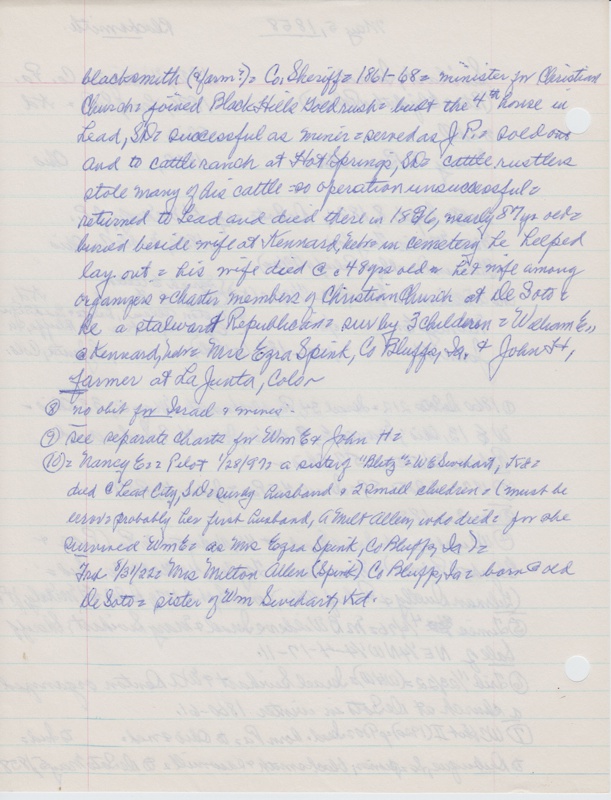 blacksmith (& farm?) = Co, Sheriff = 1861-68 = minister for Christian
Church = joined Black Hills Gold rush = built the 4th house in
Lead, SD = successful as miner = served as J.P. = sold out
and to cattle ranch at Hot Springs, SD = cattle rustlers
stole many of his cattle = so operation unsuccessful =
returned to Lead and died there in 1896, nearly 87 yrs old =
buried beside wife at Kennard, Nebr = in cemetery he helped
lay out = his wife died @ 48 yrs old = he & wife among
organizers & Charter members of Christian Church at De Soto =
he a stalwart Republican = surv by 3 children = William E.,
@ Kennard, Nebr = Mrs Ezra Spink, Co Bluffs, Ia. & John H.,
farmer at La Junta, Colo
⑧ no obit for Israel & miner.
⑨ See separate charts for Wm E & John H =
⑩ = Nancy E = Pilot 1/28/97 = a sister "Betz" = W E Swihart, Kd =
died @ Lead City, SD = survg husband & 2 small children = (must be
error = probably her first husband, A Milt Allen, who died = for she
survived Wm E = as Mrs Ezra Spink, Co Bluffs, Ia) =
Trib 8/31/22 = Mrs Milton Allen (Spink) Co Bluffs, Ia = born @ old
De Soto = sister of Wm Swihart, Kd.